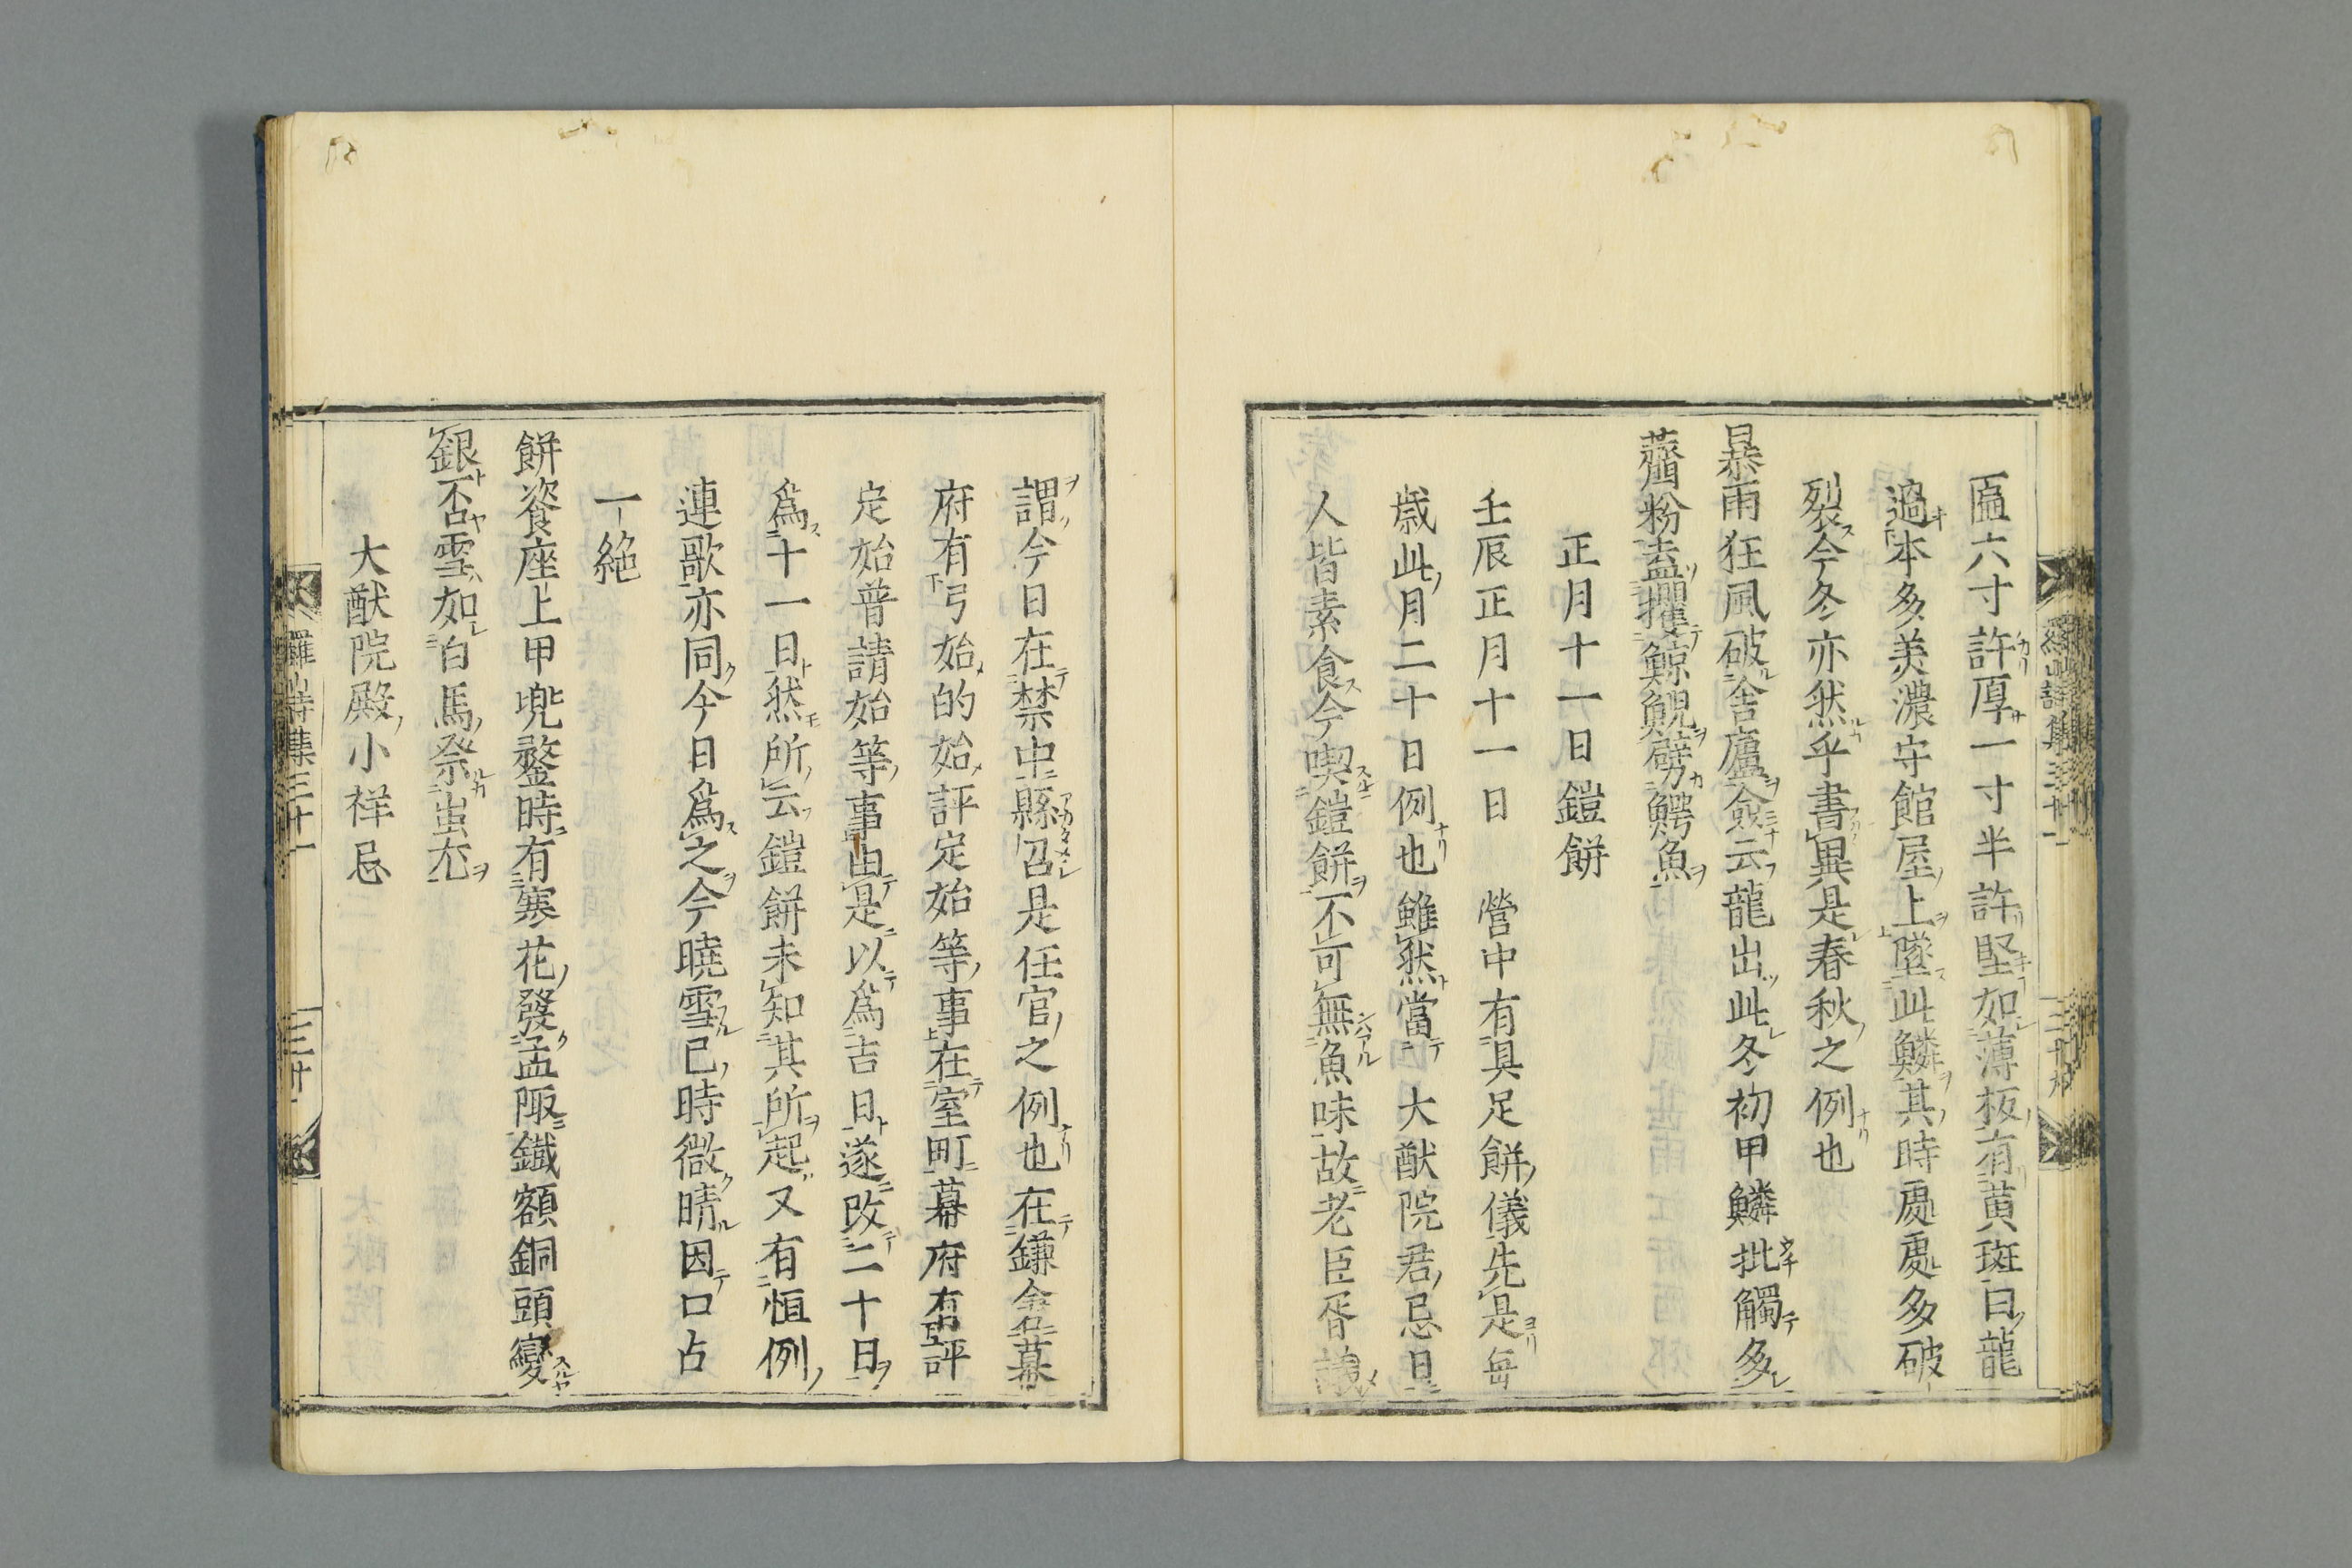 匾六寸許厚一寸半許堅如薄板有黄斑曰龍
過本多美濃守館屋上墜此鱗其時處處多破
裂今冬亦然乎書異是春秋之例也
暴雨狂風破舎廬僉云龍出此冬初甲鱗批觸多
虀粉盍攫鯨鯢劈鰐魚
正月十一日鎧餅
壬辰正月十一日　營中有具足餅儀先是毎
歳此月二十日例也雖然當　大猷院君忌日
人皆素食今喫鎧餅不可無魚味故老臣胥議
謂今日在禁中縣召是任官之例也在鎌倉幕
府有弓始的始評定始等事在室町幕府有評
定始普請始等事由是以爲吉日遂改二十日
爲十一日然所云鎧餅未知其所起又有恒例
連歌亦同今日爲之今曉雪巳時微晴因口占
一絶
餅餈座上甲兜鍪時有寒花發孟陬鐵額銅頭變
銀否雪如白馬祭蚩尤
大猷院殿小祥忌
羅山詩集三十一
三十